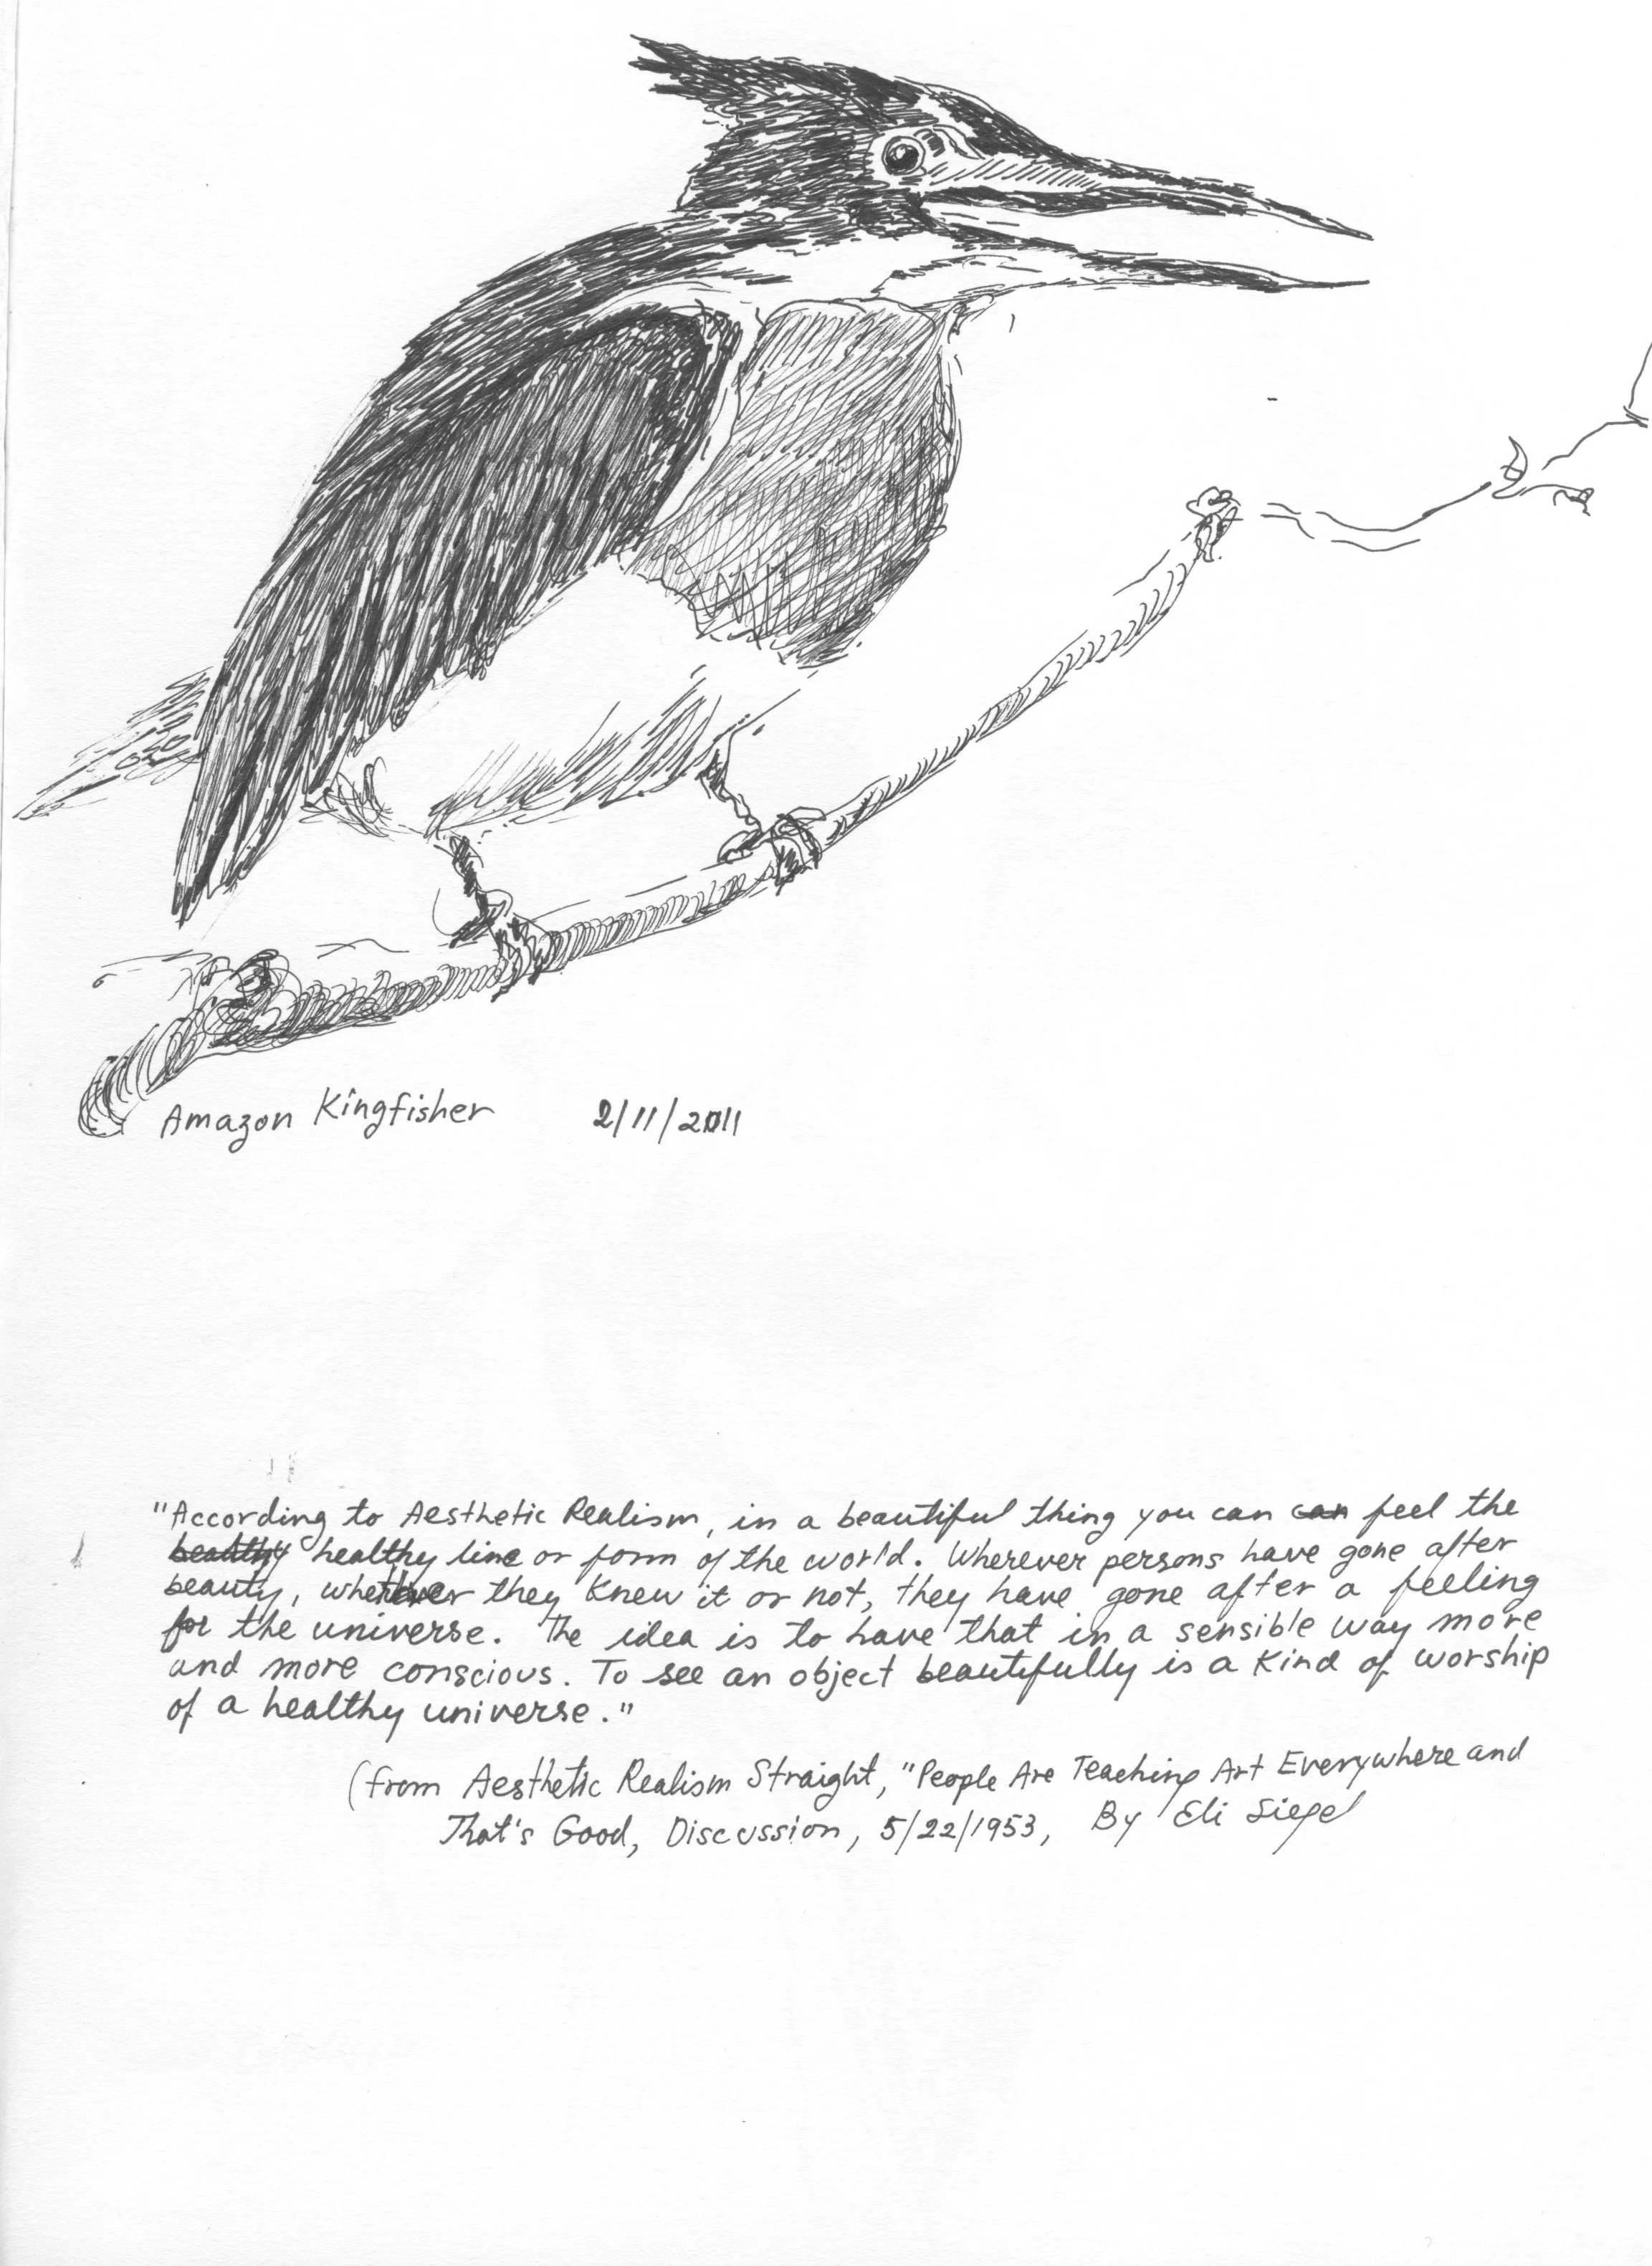 Amazon Kingfisher 2/11/2011
"According to Aesthetic Realism, in a beautiful thing you can can feel the
healthy healthy line or form of the world. Wherever persons have gone after
beauty, whether they knew it or not, they have gone after a feeling
for the universe. The idea is to have that in a sensible way more
and more conscious. To see an object beautifully is a kind of worship
of a healthy universe."
(from Aesthetic Realism Straight, "People Are Teaching Art Everywhere and
That's Good, Discussion, 5/22/1953, By Eli Siegel